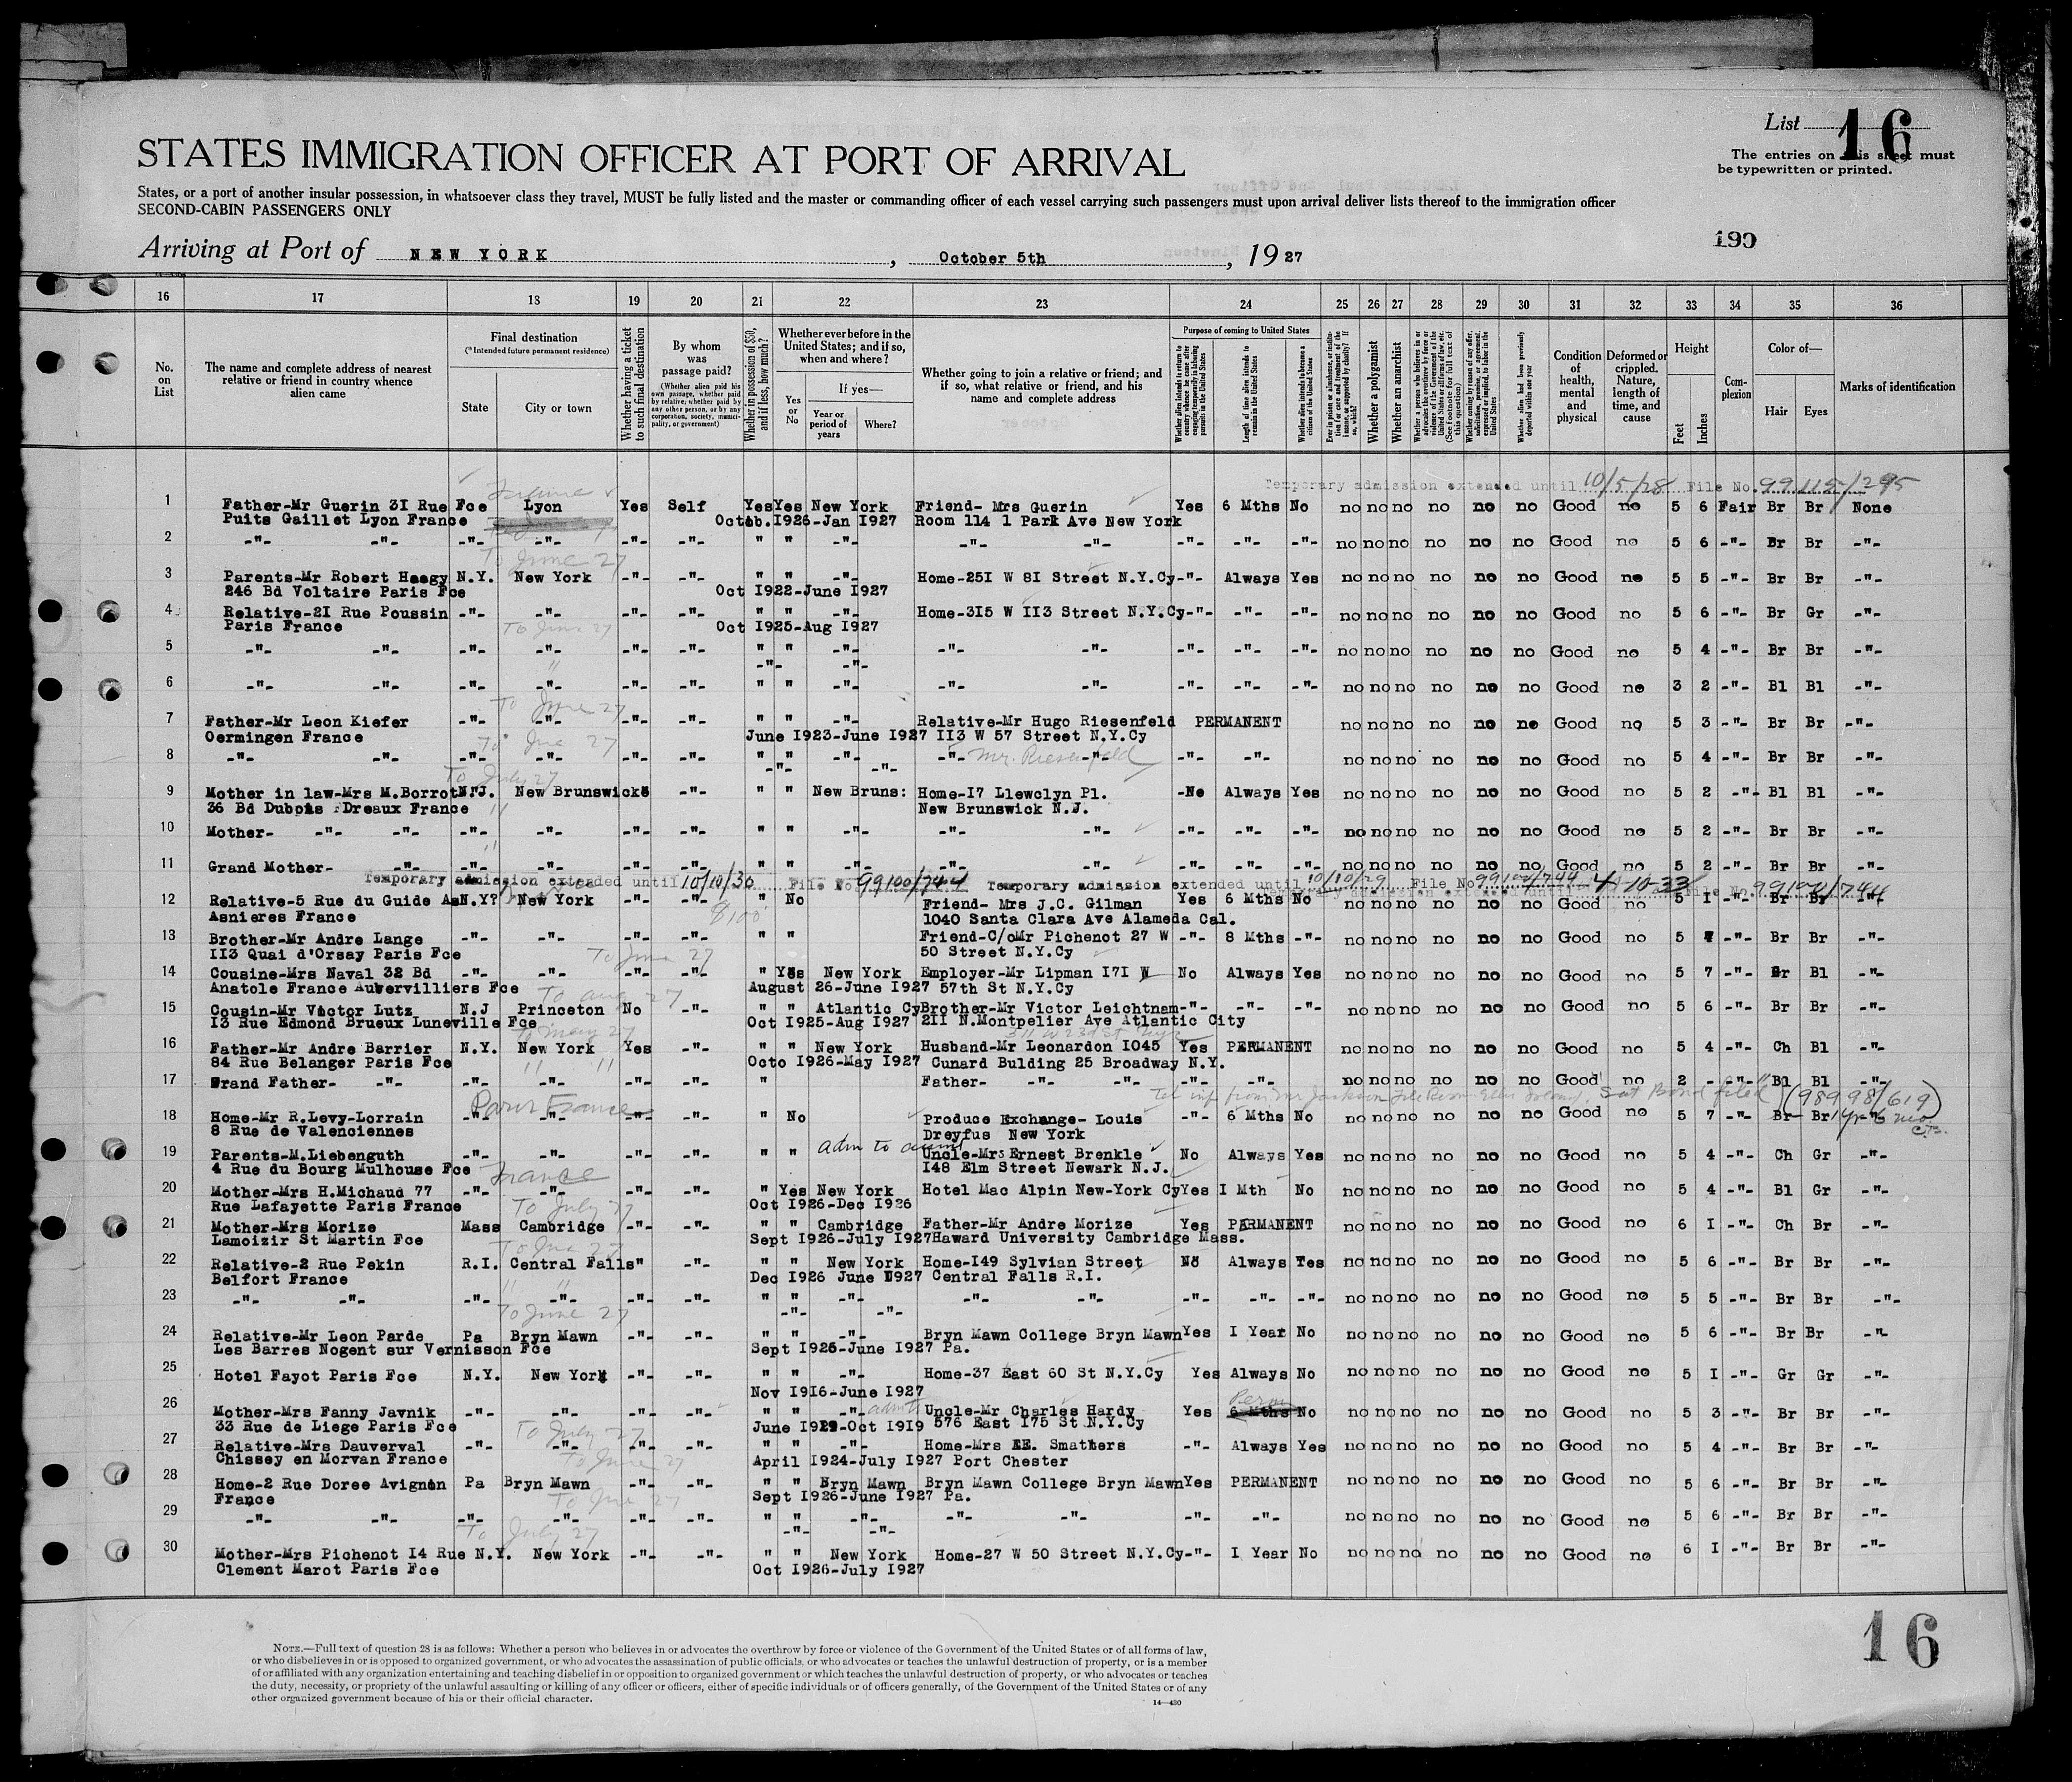 List 16
STATES IMMIGRATION OFFICER AT PORT OF ARRIVAL
The entries on this sheet must
be typewritten or printed.
States, or a port of another insular possession, in whatsoever class they travel, MUST be fully listed and the master or commanding officer of each vessel carrying such passengers must upon arrival deliver lists thereof to the immigration officer
SECOND-CABIN PASSENGERS ONLY
190
Arriving at Port of NEW YORK, October 5th, 1927
16 17 18 19 20 21 22 23 24 25 26 27 28 29 30 31 32 33 34 35 36
No. on List
The name and complete address of nearest relative or friend in country whence alien came
Final destination
(*Intended future permanent residence)
State
City or town
Whether having a ticket to such final destination
By whom was passage paid?
(Whether alien paid his own passage, whether paid by relative, whether paid by any other person, or by any corporation, society, municipality, or government)
Whether in possession of $50, and if less, how much?
Whether ever before in the United States; and if so, when and where?
Yes or No
If yes—
Year or period of years
Where?
Whether going to join a relative or friend; and if so, what relative or friend, and his name and complete address
Purpose of coming to United States
Whether alien intends to return to country whence he came after engaging temporarily in laboring pursuits in the United States
Length of time alien intends to remain in the United States
Whether alien intends to become a citizen of the United States
Whether a polygamist
Whether an anarchist
Whether alien had been previously deported within one year
Condition of health, mental and physical
Deformed or crippled. Nature, length of time, and cause
Height
Feet
Inches
Complexion
Color of—
Hair
Eyes
Marks of identification
Temporary admission extended until 10/5/28 File No. 99115/295
1 Father-Mr Guerin 3I Rue Fce Lyon Yes Self Yes Yes New York Friend- Mrs Guerin Yes 6 Mths No no no no no no no Good no 5 6 Fair Br Br None
Puits Gaillet Lyon France Octob.I926-Jan I927 Room 114 1 Park Ave New York
2 -"- -"- -"- -"- -"- -"- " " -"- -"- -"- -"- -"- -"- no no no no no no Good no 5 6 -"- Br Br -"-
To June 27
3 Parents-Mr Robert Haagy N.Y. New York -"- -"- " " -"- Home-25I W 8I Street N.Y.Cy -"- Always Yes no no no no no no Good no 5 5 -"- Br Br -"-
246 Bd Voltaire Paris Fce Oct I922-June I927
4 Relative-2I Rue Poussin -"- -"- -"- -"- " " -"- Home-3I5 W II3 Street N.Y.Cy -"- -"- -"- no no no no no no Good no 5 6 -"- Br Gr -"-
Paris France To June 27 Oct I925-Aug I927
5 -"- -"- -"- -"- -"- -"- " " -"- -"- -"- -"- -"- -"- no no no no no no Good no 5 4 -"- Br Br -"-
" -"- -"-
6 -"- -"- -"- -"- -"- -"- " " -"- -"- -"- -"- -"- -"- no no no no no no Good no 3 2 -"- Bl Bl -"-
To June 27
7 Father-Mr Leon Kiefer -"- -"- -"- -"- " " -"- Relative-Mr Hugo Riesenfeld PERMANENT no no no no no no Good no 5 3 -"- Br Br -"-
Oermingen France June I923-June I927 II3 W 57 Street N.Y.Cy
To Jne 27
8 -"- -"- -"- -"- -"- -"- " " -"- -"- Mr. Riesenfeld -"- -"- -"- no no no no no no Good no 5 4 -"- Br Br -"-
To July 27 -"- -"-
9 Mother in law-Mrs M.Borrot N.J. New Brunswick -"- " " New Bruns: Home-I7 Llewclyn Pl. -No Always Yes no no no no no no Good no 5 2 -"- Bl Bl -"-
36 Bd Dubois Dreaux France " New Brunswick N.J.
10 Mother- -"- -"- -"- -"- -"- -"- " " -"- -"- -"- -"- -"- -"- no no no no no no Good no 5 2 -"- Br Br -"-
"
11 Grand Mother- -"- -"- -"- -"- -"- " " -"- -"- -"- -"- -"- -"- no no no no no no Good no 5 2 -"- Br Br -"-
Temporary admission extended until 10/10/30 File No 99100/744 Temporary admission extended until 10/10/29 File No 99100/744 4-10-33 File No. 99100/744
12 Relative-5 Rue du Guide As N.Y? New York -"- -"- " No Friend- Mrs J.C. Gilman Yes 6 Mths No no no no no no no Good no 5 I -"- Br Br -"-
Asnieres France $100 1040 Santa Clara Ave Alameda Cal.
13 Brother-Mr Andre Lange -"- -"- -"- -"- " " Friend-C/oMr Pichenot 27 W -"- 8 Mths -"- no no no no no no Good no 5 -"- Br Br -"-
II3 Quai d'Orsay Paris Fce To June 27 50 Street N.Y.Cy
14 Cousine-Mrs Naval 32 Bd -"- -"- -"- -"- " Yes New York Employer-Mr Lipman I7I W No Always Yes no no no no no no Good no 5 7 -"- Br Bl -"-
Anatole France Aubervilliers Fce August 26-June I927 57th St N.Y.Cy
To aug 27
15 Cousin-Mr Victor Lutz N.J Princeton No -"- " " Atlantic Cy Brother-Mr Victor Leichtnam -"- -"- -"- no no no no no no Good no 5 6 -"- Br Br -"-
I3 Rue Edmond Brueux Luneville Fce Oct I925-Aug I927 2II N.Montpelier Ave Atlantic City
To May 27
16 Father-Mr Andre Barrier N.Y. New York Yes -"- " " New York Husband-Mr Leonardon I045 Yes PERMANENT no no no no no no Good no 5 4 -"- Ch Bl -"-
84 Rue Belanger Paris Fce " " Octo I926-May I927 Cunard Bulding 25 Broadway N.Y.
17 Grand Father- -"- -"- -"- -"- -"- " Father- -"- -"- -"- -"- no no no no no no Good no 2 - -"- Bl Bl -"-
Paris France (98998/619)
18 Home-Mr R.Levy-Lorrain -"- -"- -"- -"- " No Produce Exchange- Louis -"- 6 Mths No no no no no no no Good no 5 7 -"- Br Br -"-
8 Rue de Valenciennes Dreyfus New York
19 Parents-M.Liebenguth -"- -"- -"- -"- " " Uncle-Mrs Ernest Brenkle No Always Yes no no no no no no Good no 5 4 -"- Ch Gr -"-
4 Rue du Bourg Mulhouse Fce France I48 Elm Street Newark N.J.
20 Mother-Mrs H.Michaud 77 -"- -"- -"- -"- " Yes New York Hotel Mac Alpin New-York Cy Yes I Mth No no no no no no no Good no 5 4 -"- Bl Gr -"-
Rue Lafayette Paris France To July 27 Oct I926-Dec I926
21 Mother-Mrs Morize Mass Cambridge -"- -"- " " Cambridge Father-Mr Andre Morize Yes PERMANENT no no no no no no Good no 6 I -"- Ch Br -"-
Lamoizir St Martin Fce Sept I926-July I927 Haward University Cambridge Mass.
22 Relative-2 Rue Pekin R.I. Central Falls" -"- " " New York Home-I49 Sylvian Street No Always Yes no no no no no no Good no 5 6 -"- Br Br -"-
Belfort France " " Dec I926 June I927 Central Falls R.I.
23 -"- -"- -"- -"- -"- -"- " " -"- -"- -"- -"- -"- -"- no no no no no no Good no 5 5 -"- Br Br -"-
To June 27 -"- -"-
24 Relative-Mr Leon Parde Pa Bryn Mawn -"- -"- " " -"- Bryn Mawn College Bryn Mawn Yes I Year No no no no no no no Good no 5 6 -"- Br Br -"-
Les Barres Nogent sur Vernisson Fce Sept I926-June I927 Pa.
25 Hotel Fayot Paris Fce N.Y. New York -"- -"- " " -"- Home-37 East 60 St N.Y.Cy Yes Always No no no no no no no Good no 5 I -"- Gr Gr -"-
Nov I9I6-June I927
26 Mother-Mrs Fanny Javnik -"- -"- -"- -"- " " -"- Uncle-Mr Charles Hardy Yes 6 Mths Perm No no no no no no no Good no 5 3 -"- Br Br -"-
33 Rue de Liege Paris Fce To July 27 Oct I9I9 576 East I75 St N.Y.Cy
27 Relative-Mrs Dauverval -"- -"- -"- -"- " " -"- Home-Mrs EE. Smathers -"- Always Yes no no no no no no Good no 5 4 -"- Br Br -"-
Chissey en Morvan France To June 27 April I924-July I927 Port Chester
28 Home-2 Rue Doree Avignon Pa Bryn Mawn -"- -"- " " Bryn Mawn Bryn Mawn College Bryn Mawn Yes PERMANENT no no no no no no Good no 5 6 -"- Br Br -"-
France Sept I926-June I927 Pa.
29 -"- -"- -"- -"- -"- -"- " " -"- -"- -"- -"- -"- no no no no no no Good no 5 6 -"- Br Br -"-
To July 27 -"- -"-
30 Mother-Mrs Pichenot I4 Rue N.Y. New York -"- -"- " " New York Home-27 W 50 Street N.Y.Cy -"- I Year No no no no no no no Good no 6 I -"- Br Br -"-
Clement Marot Paris Fce Oct I926-July I927
16
NOTE.—Full text of question 28 is as follows: Whether a person who believes in or advocates the overthrow by force or violence of the Government of the United States or of all forms of law,
or who disbelieves in or is opposed to organized government, or who advocates the assassination of public officials, or who advocates or teaches the unlawful destruction of property, or is a member
of or affiliated with any organization entertaining and teaching disbelief in or opposition to organized government or which teaches the unlawful destruction of property, or who advocates or teaches
the duty, necessity, or propriety of the unlawful assaulting or killing of any officer or officers, either of specific individuals or of officers generally, of the Government of the United States or of any
other organized government because of his or their official character.
14—430